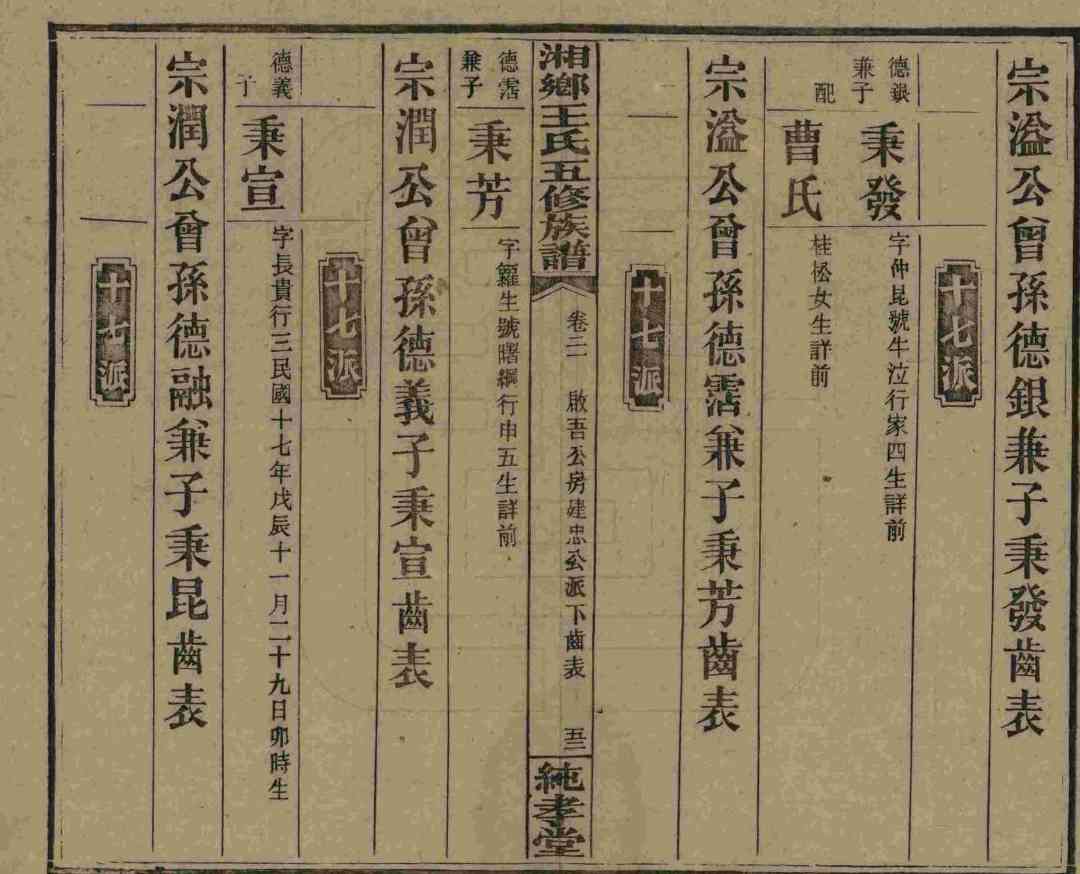 宗溢公曾孫德銀兼子秉發齒表
十七派
德銀兼子
秉發
字仲昆號牛泣行家四生詳前
配
曹氏
桂松女生詳前
宗溢公曾孫德霑兼子秉芳齒表
十七派
湘鄉王氏五修族譜
卷二
啟吾公房建忠公派下齒表
五三
純孝堂
德霑兼子
秉芳
字籮生號曙綱行申五生詳前
宗潤公曾孫德義子秉宣齒表
十七派
德義子
秉宣
字長貴行三民國十七年戊辰十一月二十九日卯時生
宗潤公曾孫德融兼子秉昆齒表
十七派